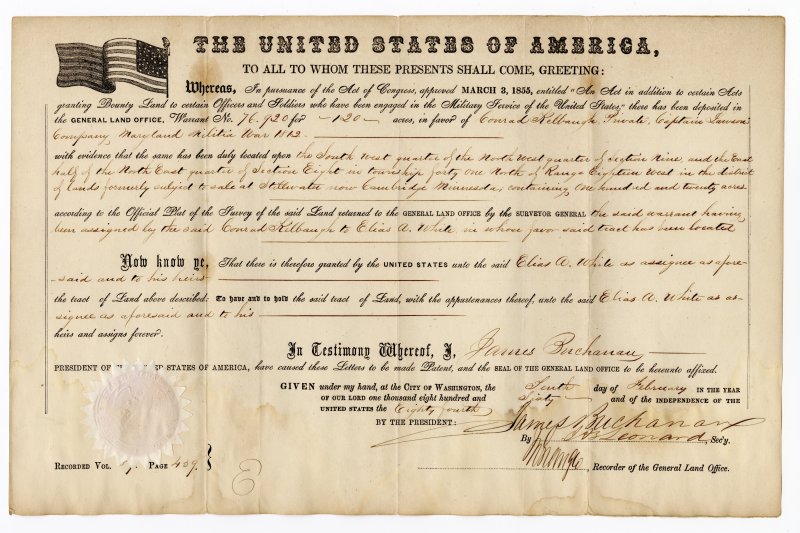 THE UNITED STATES OF AMERICA,
TO ALL TO WHOM THESE PRESENTS SHALL COME, GREETING:
Whereas, In pursuance of the Act of Congress, approved MARCH 3, 1855, entitled "An Act in addition to certain Acts
granting Bounty Land to certain Officers and Soldiers who have been engaged in the Military Service of the United States," there has been deposited in
the GENERAL LAND OFFICE, Warrant No. 76.920 for -120- acres, in favor of Conrad Kelbaugh Private, Captain Lawson
Company, Maryland Militia War 1812.
with evidence that the same has been duly located upon the South West quarter of the North West quarter of Section Nine, and the East
half of the North East quarter of Section Eight in township forty one North of Range Eighteen West in the district
of lands formerly subject to sale at Stillwater now Cambridge Minnesota, containing One hundred and twenty acres
according to the Official Plat of the Survey of the said Land returned to the GENERAL LAND OFFICE by the SURVEYOR GENERAL the said warrant having
been assigned by the said Conrad Kelbaugh to Elias A. White in whose favor said tract has been located
Now know ye, That there is therefore granted by the UNITED STATES unto the said Elias A. White as assignee as afore-
said and to his heirs
the tract of Land above described: To have and to hold the said tract of Land, with the appurtenances thereof, unto the said Elias A. White as as-
signee as aforesaid and to his
heirs and assigns forever.
In Testimony Whereof, I, James Buchanan
PRESIDENT OF THE UNITED STATES OF AMERICA, have caused these Letters to be made Patent, and the SEAL OF THE GENERAL LAND OFFICE to be hereunto affixed.
GIVEN under my hand, at the CITY OF WASHINGTON, the Tenth day of February IN THE YEAR
OF OUR LORD one thousand eight hundred and Sixty and of the INDEPENDENCE OF THE
UNITED STATES the Eighty fourth
BY THE PRESIDENT: James Buchanan
By Leonard, Sec'y.
RECORDED VOL. PAGE 409.
, Recorder of the General Land Office.
E